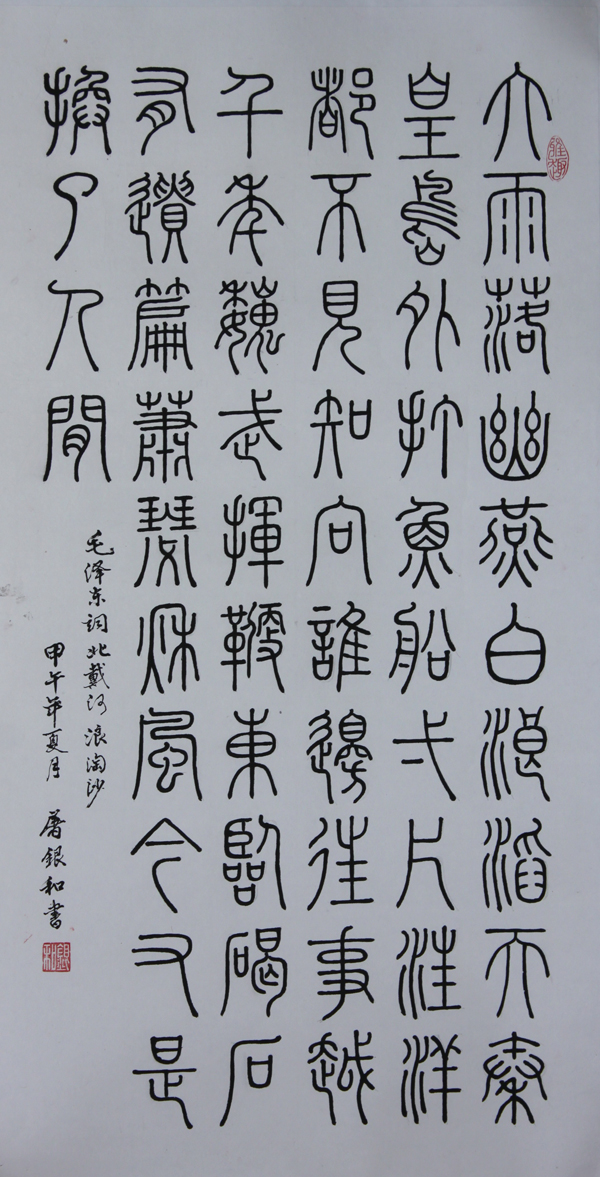 大雨落幽燕白浪滔天秦
皇島外打魚船弌片汪洋
都不見知向誰邊往事越
千年魏武揮鞭東臨碣石
有遺篇蕭瑟秋風今又是
換了人間
毛泽东詞北戴河浪淘沙
甲午年夏月 屠銀和書